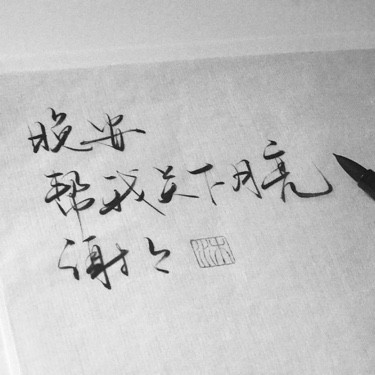 晚安
帮我关下月亮
谢谢